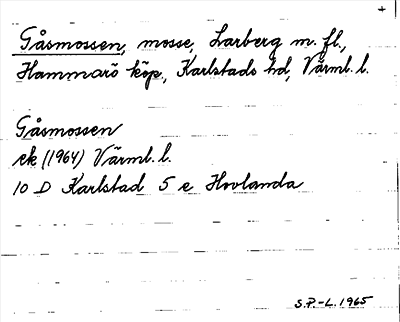 +
Gåsmossen, mosse, Larberg m. fl.,
Hammarö köp., Karlstads hd, Värml. l.
Gåsmossen
ek (1964) Värml. l.
10 D Karlstad 5 e Hovlanda
S.P.-L. 1965